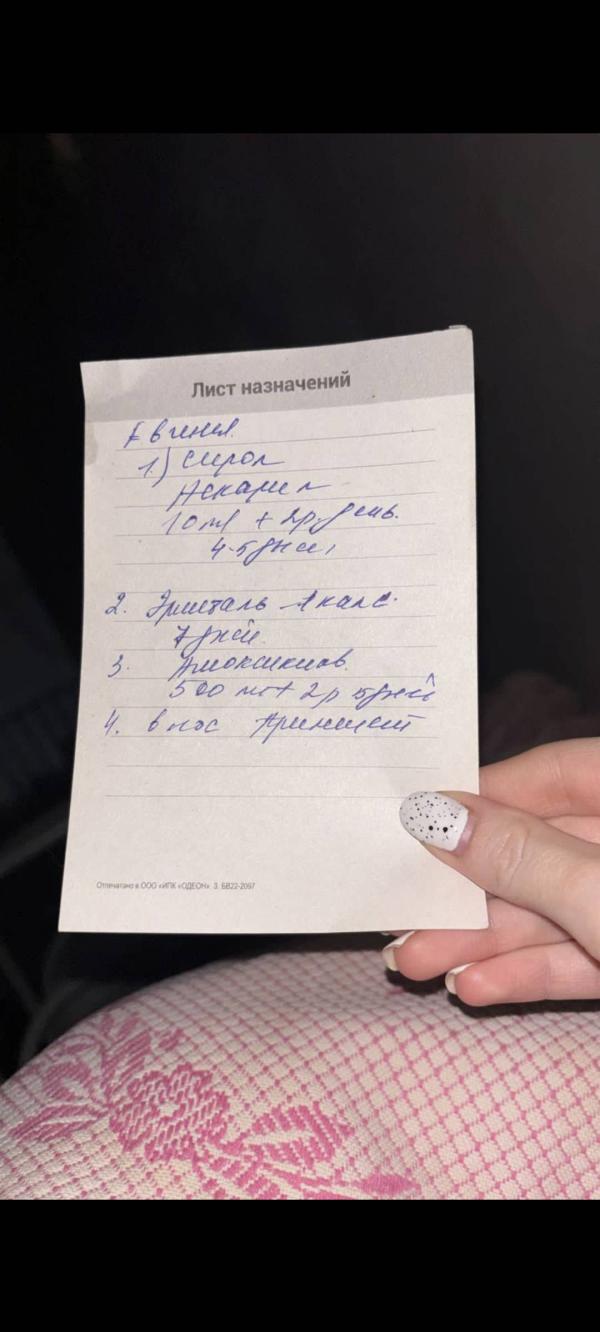 Лист назначений
Евгения.
1.) Сироп
Аскарил
10 ml + 2р. день.
4-5 дней
2. Эристаль 1 капс.
7 дней
3. Амоксиклав.
500 мг + 2р 5 дней
4. в нос
Отпечатано в ООО «ИПК «ОДЕОН» З. БВ22-2097